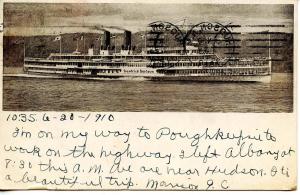 10:35. 6-20-1910
I'm on my way to Poughkeepsie to
work on the highway I left Albany at
7:30 this A.M. We are near Hudson. It is
a beautiful trip.